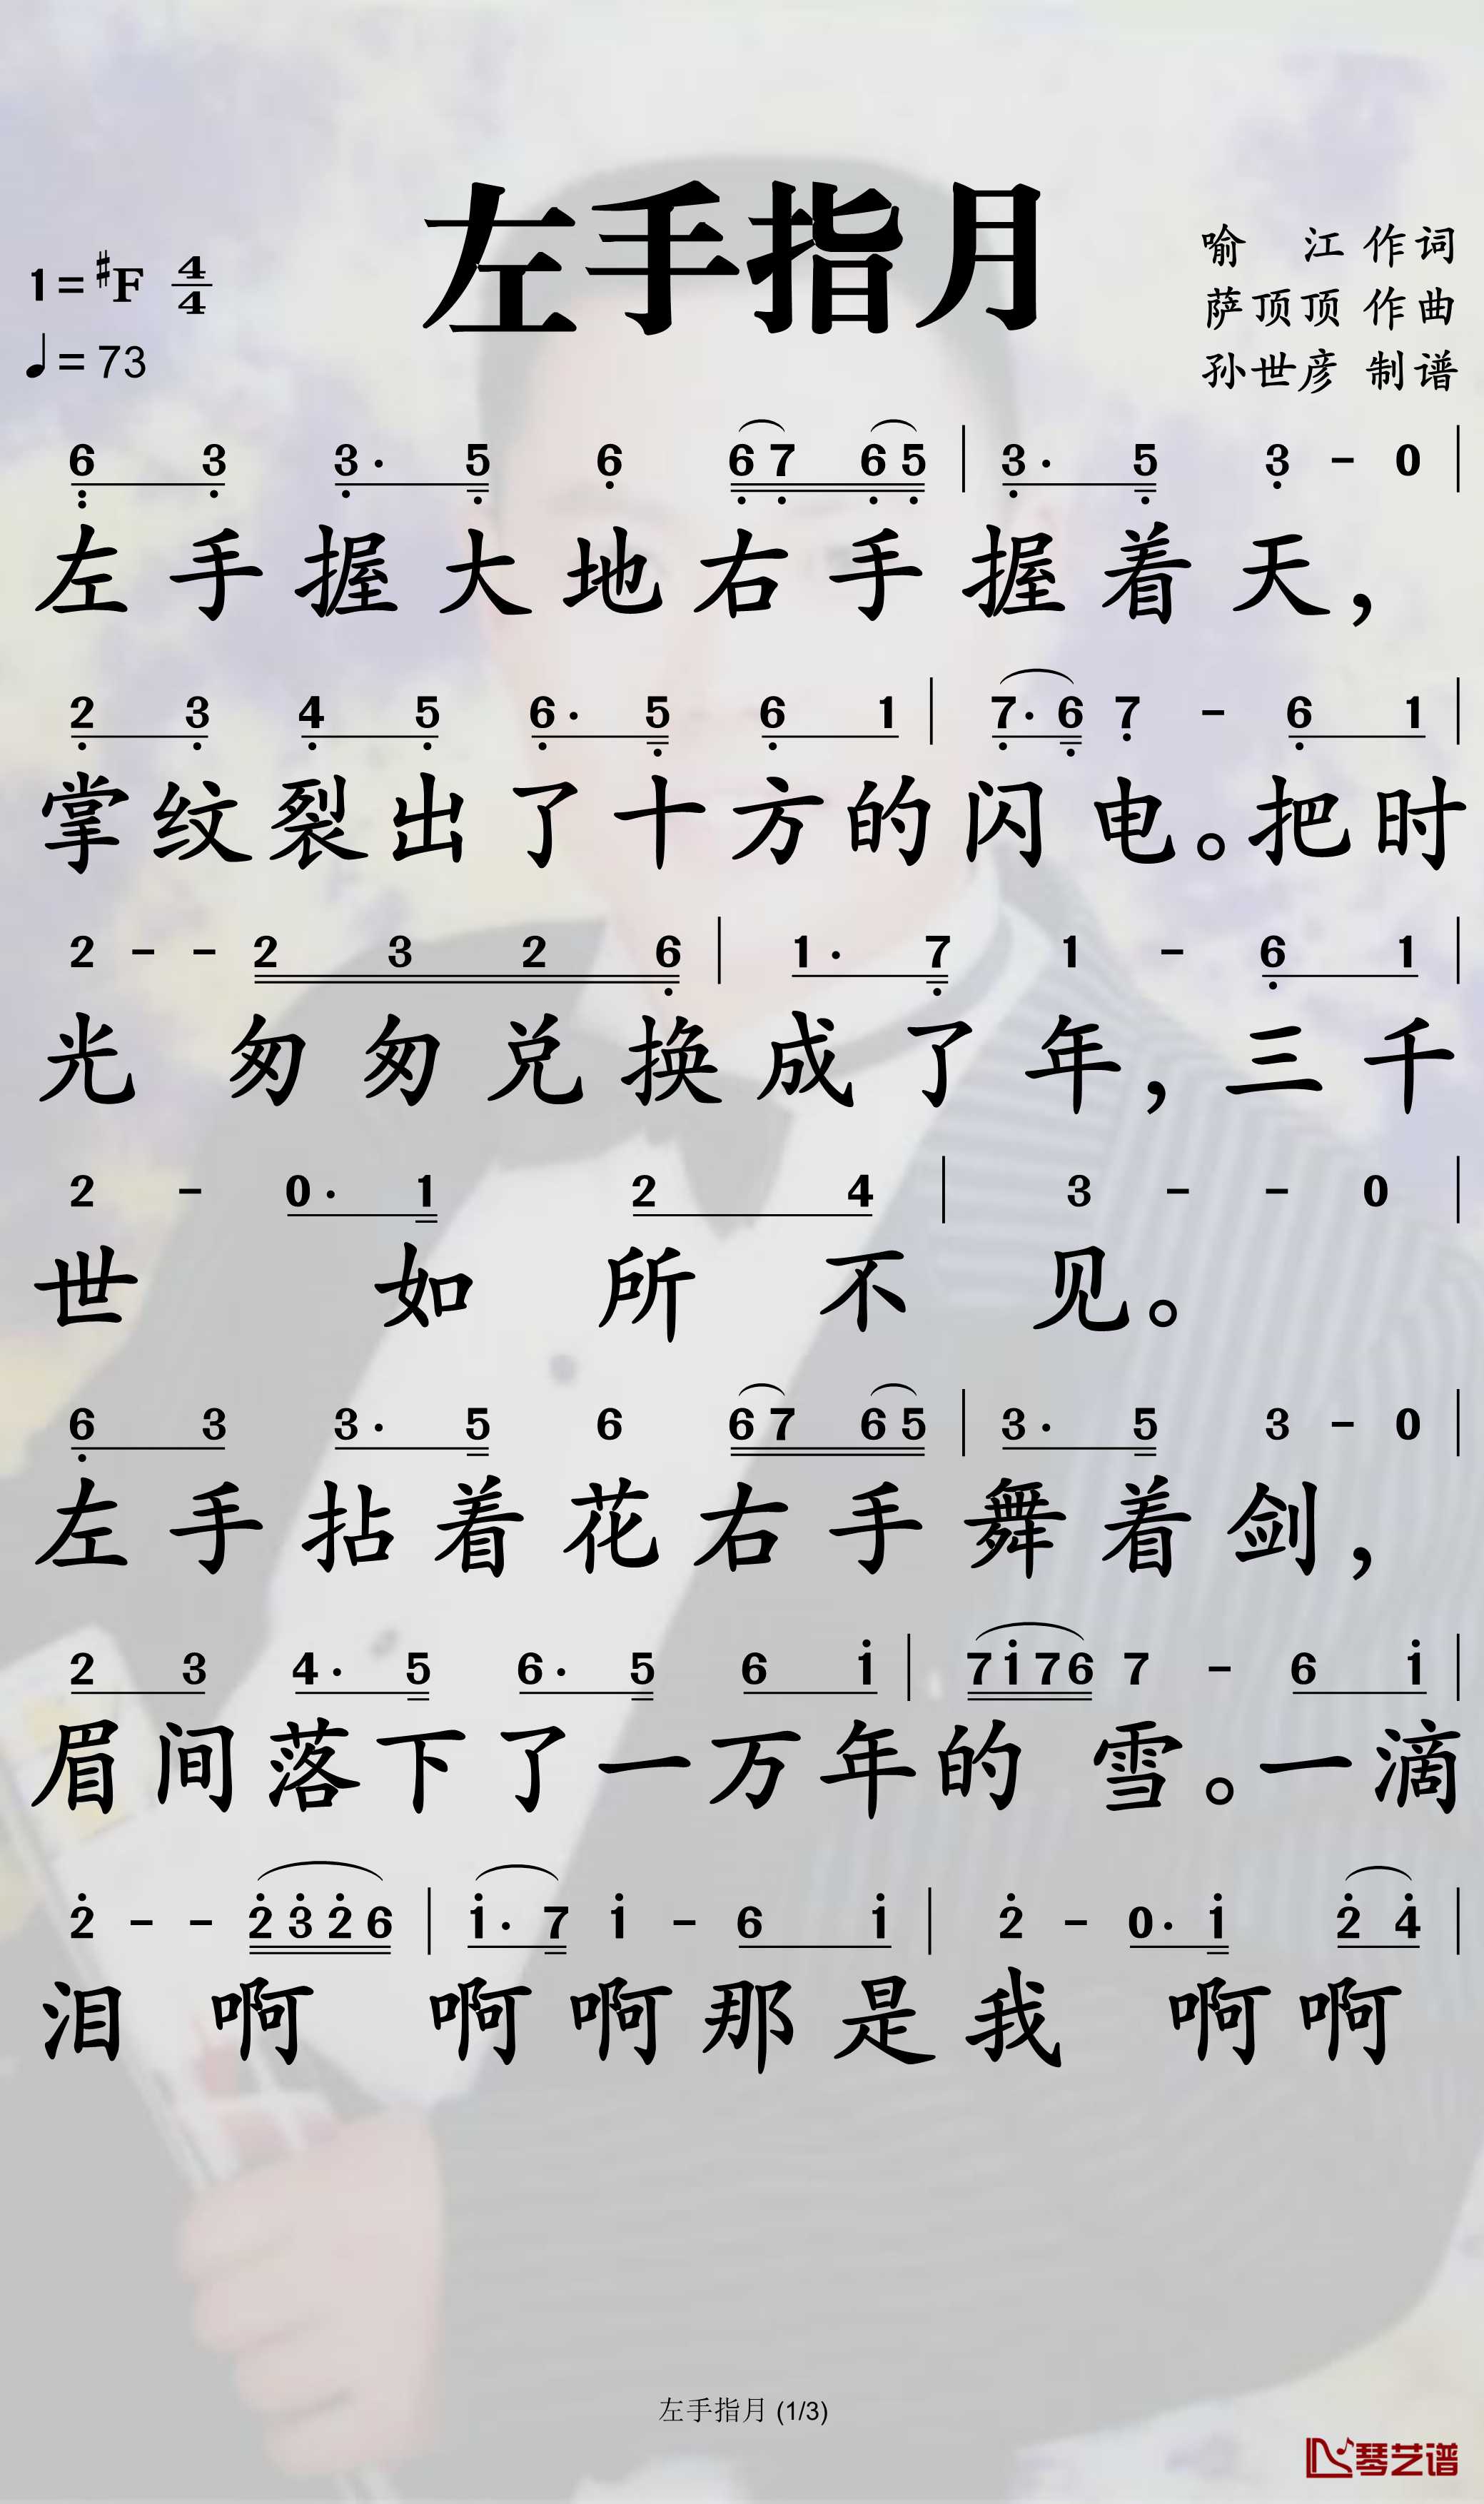 左手指月
1=#F 4/4
♩= 73
喻 江 作词
萨顶顶 作曲
孙世彦 制谱
6̣̣ 3̣ 3̣· 5̣ 6̣ 6̣ 7̣ 6̣ 5̣ | 3̣· 5̣ 3̣ - 0 |
左手握大地右手握着天，
2̣ 3̣ 4̣ 5̣ 6̣· 5̣ 6̣ 1 | 7̣· 6̣ 7̣ - 6̣ 1 |
掌纹裂出了十方的闪电。把时
2 - - 2 3 2 6̣ | 1· 7̣ 1 - 6̣ 1 |
光 匆匆兑换成了年，三千
2 - 0· 1 2 4 | 3 - - 0 |
世 如所不见。
6̣ 3 3· 5 6 6 7 6 5 | 3· 5 3 - 0 |
左手拈着花右手舞着剑，
2 3 4· 5 6· 5 6 1̇ | 7 1̇ 7 6 7 - 6 1̇ |
眉间落下了一万年的 雪。一滴
2̇ - - 2̇ 3̇ 2̇ 6 | 1̇· 7 1̇ - 6 1̇ | 2̇ - 0· 1̇ 2̇ 4̇ |
泪 啊 啊 啊那是我 啊 啊
左手指月 (1/3)
琴艺谱